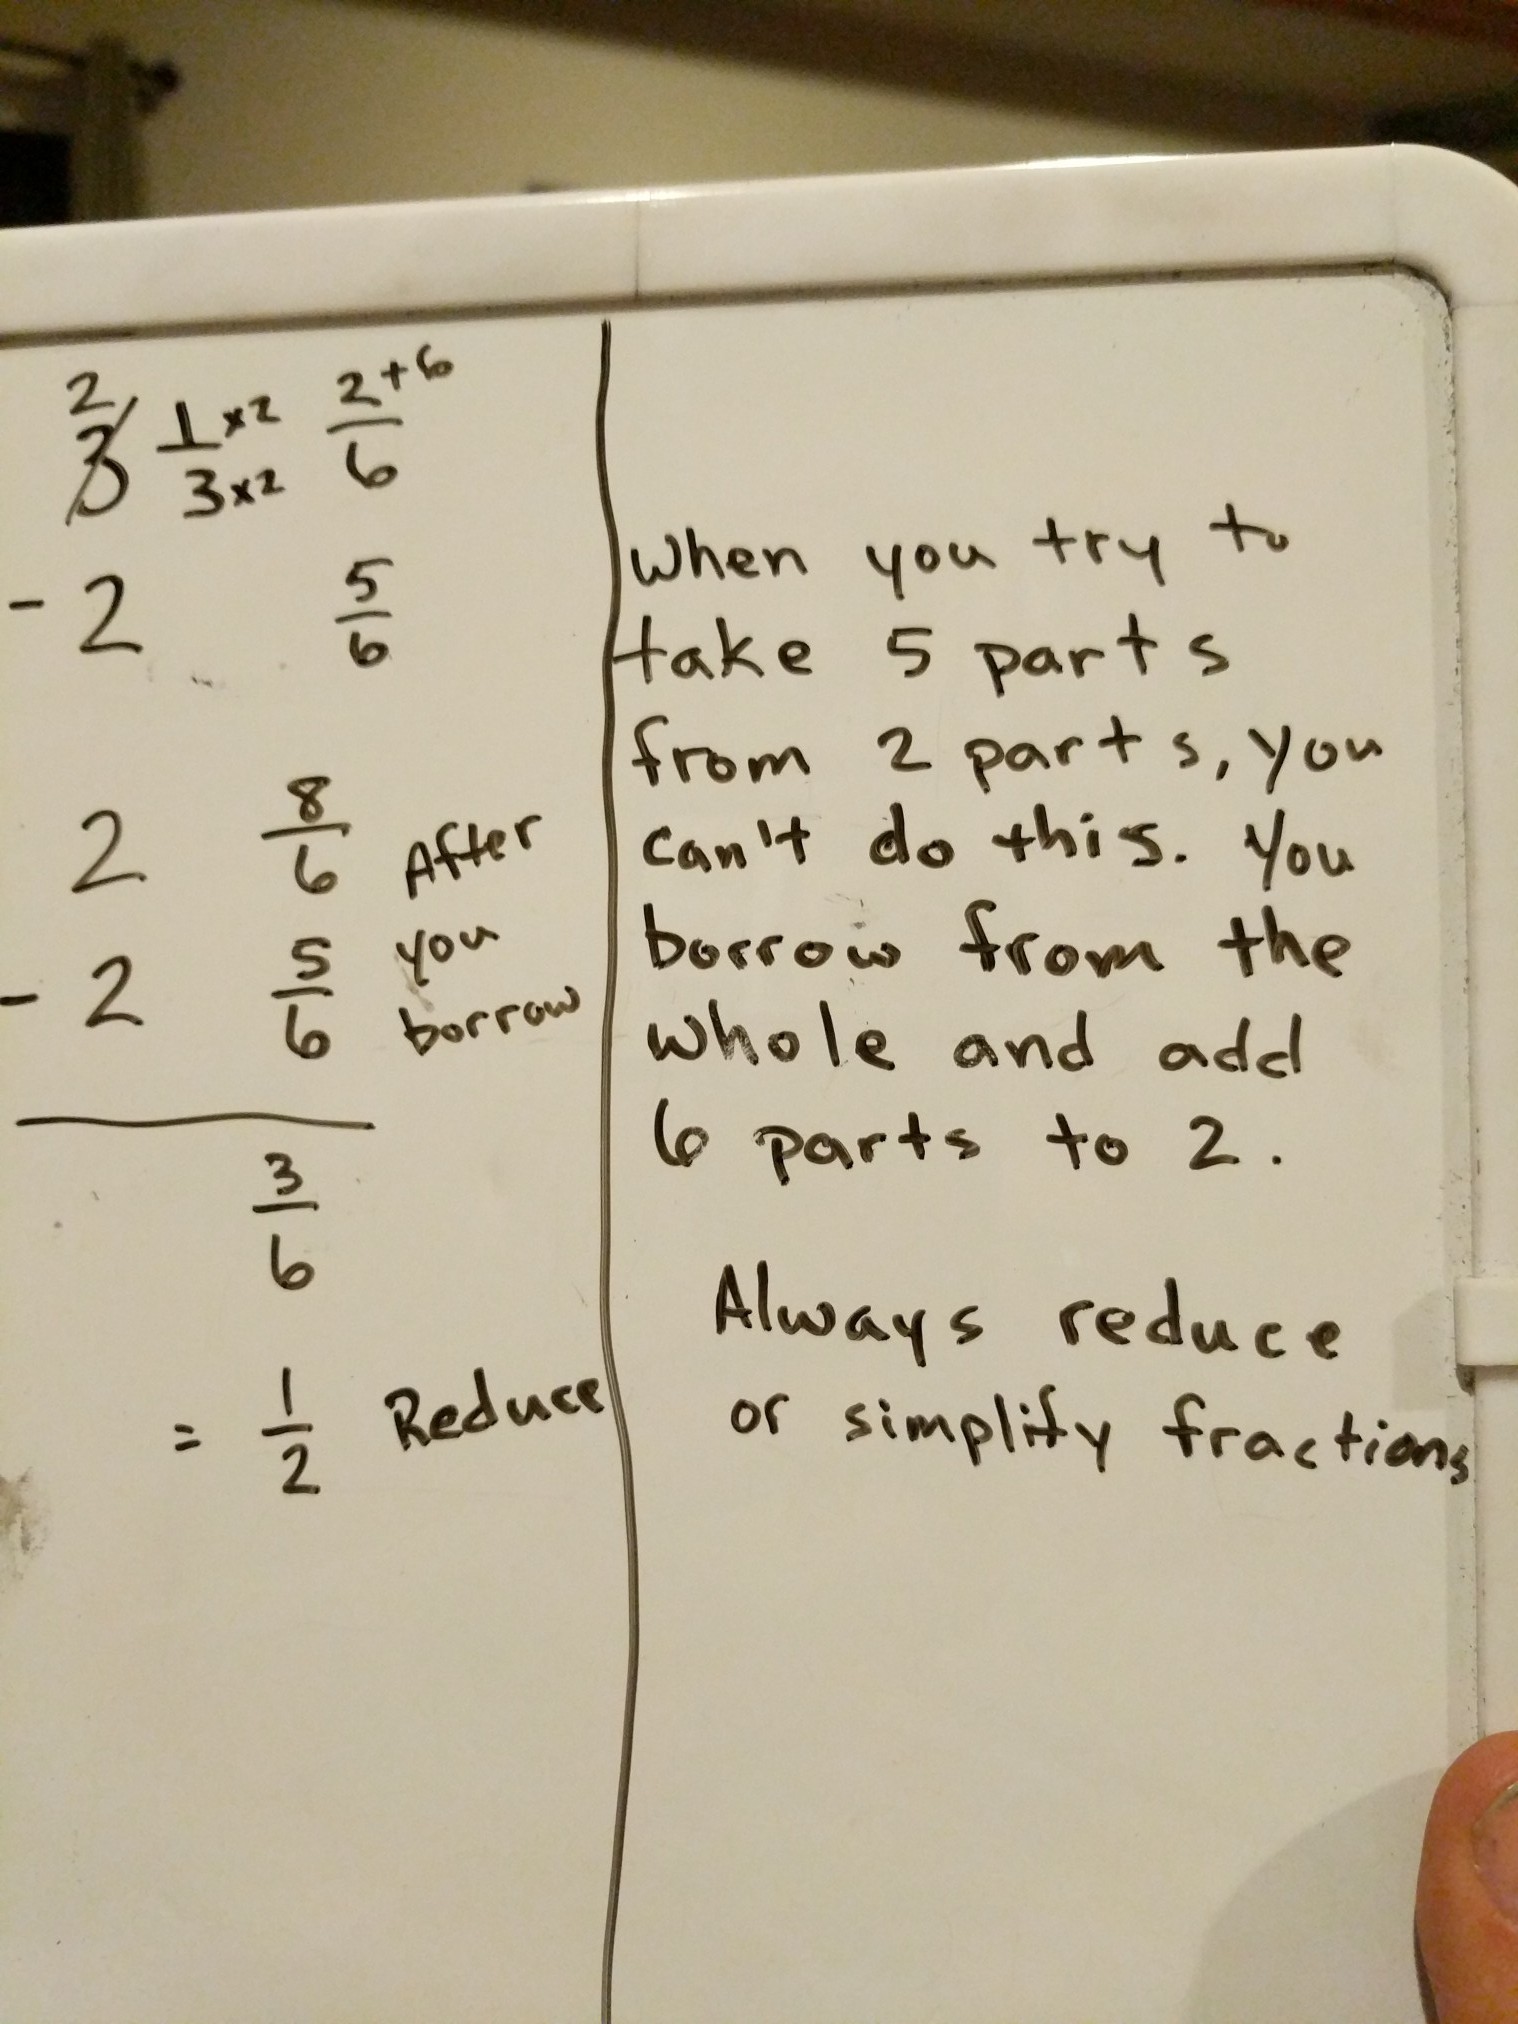 2
3 1 x2 2 +6
3 x2 6
- 2 5
6
2 8
6 After
you
- 2 5
6 borrow
3
6
= 1
2 Reduce
When you try to
take 5 parts
from 2 parts, you
can't do this. You
borrow from the
whole and add
6 parts to 2.
Always reduce
or simplify fractions